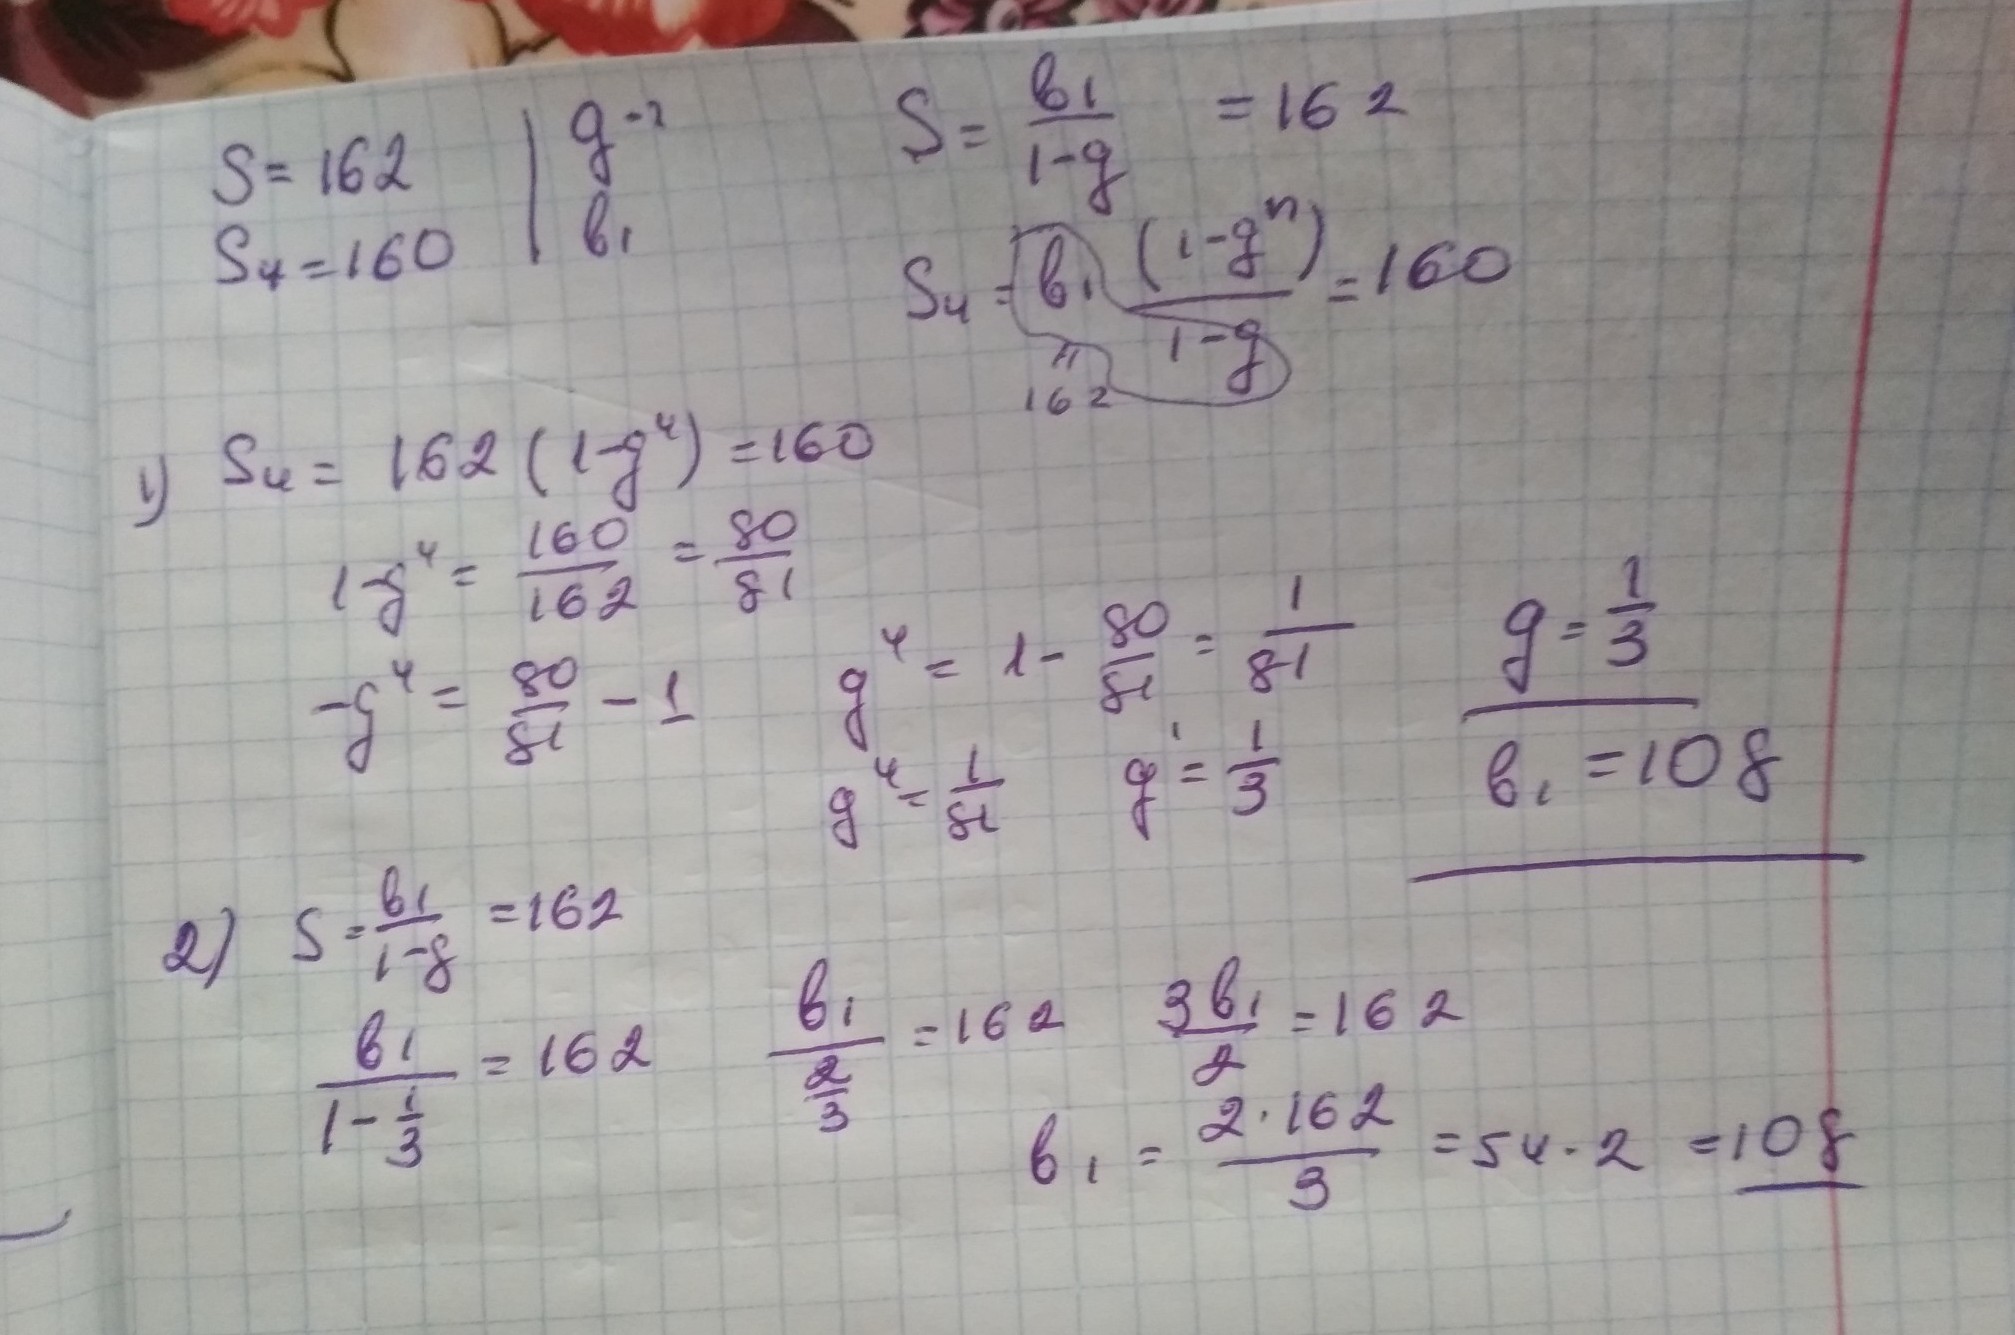 S = 162 | g - ?
S₄ = 160 | b₁
S = b₁/(1-g) = 162
S₄ = b₁ (1-gⁿ)/(1-g) = 160
162
1) S₄ = 162 (1-g⁴) = 160
1-g⁴ = 160/162 = 80/81
-g⁴ = 80/81 - 1
g⁴ = 1 - 80/81 = 1/81
g⁴ = 1/81 g = 1/3
g = 1/3
b₁ = 108
2) S = b₁/(1-g) = 162
b₁/(1 - 1/3) = 162 b₁/(2/3) = 162 3b₁/2 = 162
b₁ = 2·162/3 = 54·2 = 108